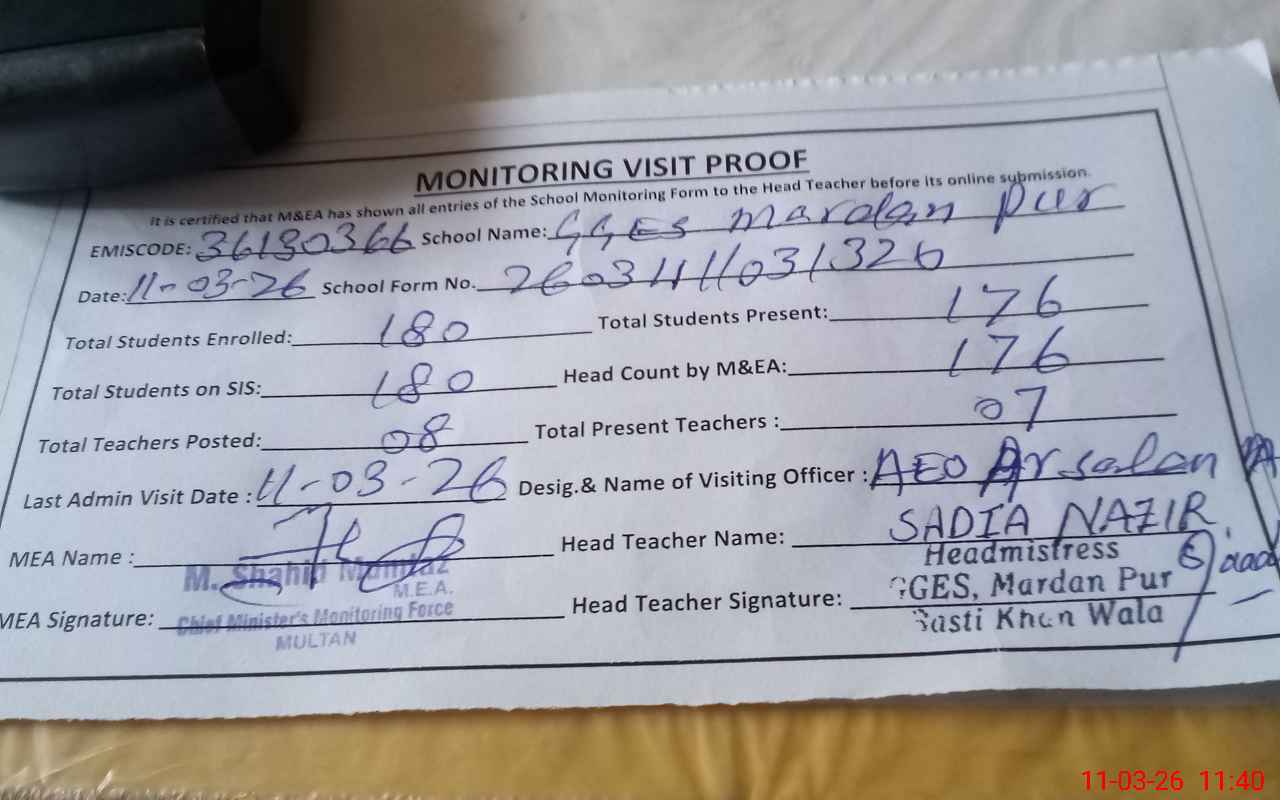 MONITORING VISIT PROOF
It is certified that M&EA has shown all entries of the School Monitoring Form to the Head Teacher before its online submission.
EMISCODE: 36130366 School Name: GGES mardan pur
Date: 11-03-26 School Form No. 2603411031326
Total Students Enrolled: 180 Total Students Present: 176
Total Students on SIS: 180 Head Count by M&EA: 176
Total Teachers Posted: 08 Total Present Teachers : 07
Last Admin Visit Date : 11-03-26 Desig.& Name of Visiting Officer : AEO Arsalan
MEA Name : Head Teacher Name: SADIA NAZIR
M. Shahid Mumtaz Headmistress
M.E.A. GGES, Mardan Pur
MEA Signature: Chief Minister's Monitoring Force Head Teacher Signature: Basti Khan Wala
MULTAN
11-03-26 11:40